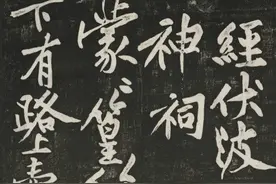 經伏波
神祠
蒙〻篁
下有路上